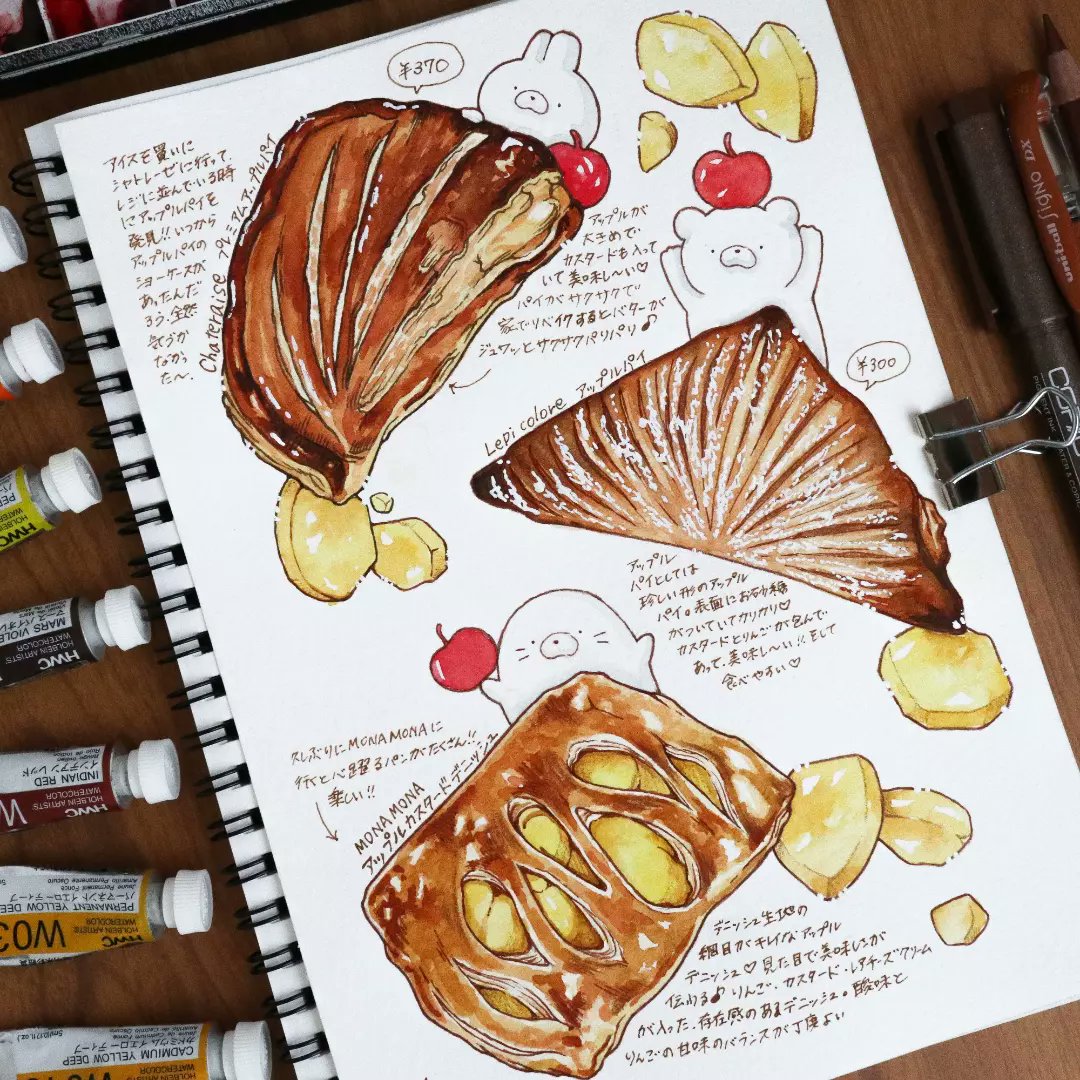 ¥370
アイスを買いに
シャトレーゼに行って、
レジに並んでいる時
にアップルパイを
発見!! いつから
アップルパイの
ショーケースが
あったんだ
ろう…全然
気づか
なかっ
た〜。
Chateraise プレミアムアップルパイ
アップルが
大きめで
カスタードも入って
いて美味し〜い♡
パイがサクサクで
家でリベイクするとバターが
ジュワッとサクサクパリパリ♪
¥300
Lepi colore アップルパイ
アップル
パイとしては
珍しい形のアップル
パイ。表面にお砂糖
がついていてカリカリ♡
カスタードとりんごが包んで
あって、美味し〜い!! そして
食べやすい♡
久しぶりにMONAMONAに
行くと心躍るパンがたくさん!!
楽しい!!
MONAMONA
アップルカスタードデニッシュ
デニッシュ生地の
網目がキレイなアップル
デニッシュ♡ 見た目で美味しさが
伝わる♪ りんご・カスタード・レアチーズクリーム
が入った、存在感のあるデニッシュ。酸味と
りんごの甘味のバランスが丁度よい
HWC
HOLBEIN ARTISTS'
WATERCOLOR
MARS VIOLET
HOLBEIN ARTISTS'
WATERCOLOR
HWC
INDIAN RED
インディアン レッド
HOLBEIN ARTISTS'
WATERCOLOR
HWC
Jaune Permanent Foncé
Amarillo Permanente Oscuro
パーマネント イエロー ディープ
PERMANENT YELLOW DEEP
HOLBEIN ARTISTS'
WATERCOLOR
HWC
W03
5ml(0.17fl.oz.)
Jaune de Cadmium Foncé
Amarillo de Cadmio Oscuro
カドミウム イエロー ディープ
CADMIUM YELLOW DEEP
HOLBEIN ARTISTS'
WATERCOLOR
HWC
uni-ball Signo DX